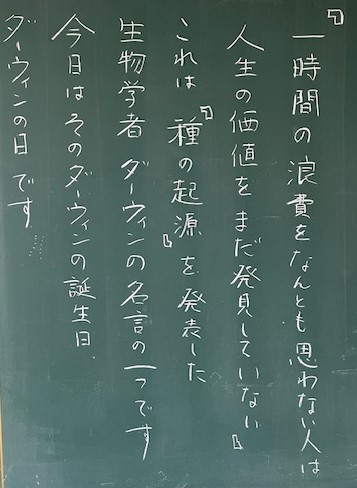 『一時間の浪費をなんとも思わない人は
人生の価値をまだ発見していない』
これは『種の起源』を発表した
生物学者 ダーウィンの名言の一つです
今日はそのダーウィンの誕生日
ダーウィンの日です……